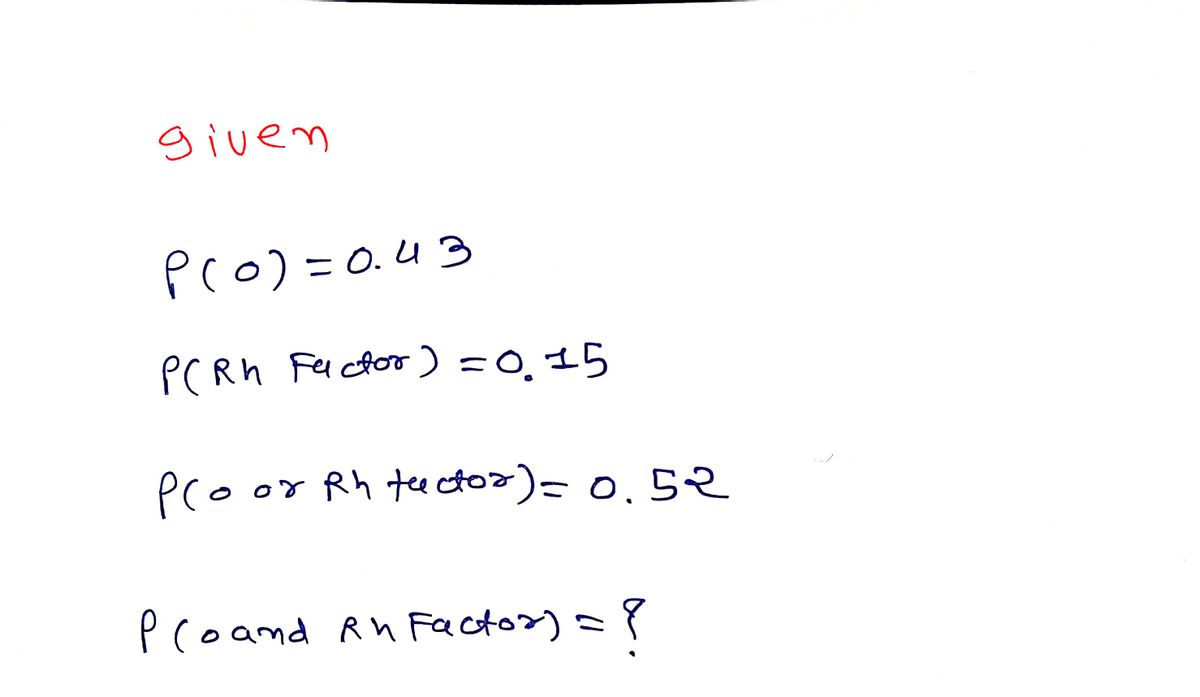 given
P(O) = 0.43
P(Rh Factor) = 0.15
P(O or Rh factor) = 0.52
P(O and Rh Factor) = ?